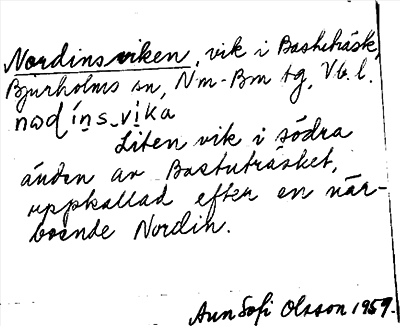 Nordinsviken, vik i Bastuträsk,
Bjurholms sn, Nm-Bm tg, Vb. l.
nɷdíns-vika
Liten vik i södra
änden av Bastuträsket,
uppkallad efter en när-
boende Nordin.
Ann Sofi Olsson 1959.